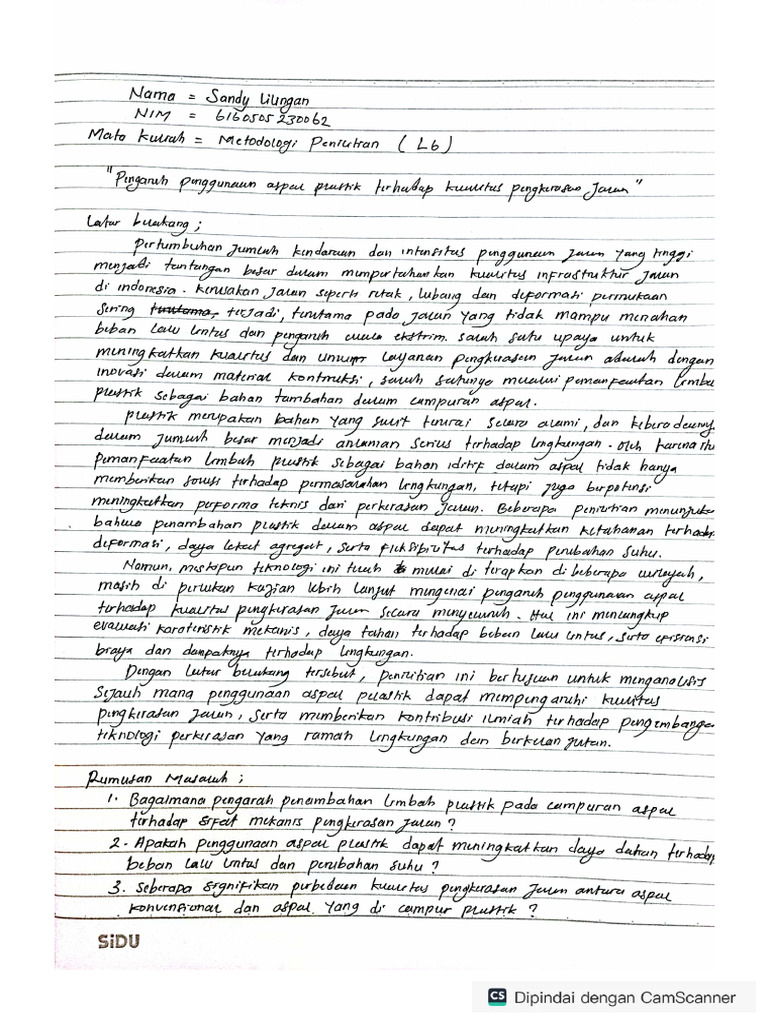 Nama = Sandy Liungan
NIM = 6160505230062
Mata Kuliah = Metodologi Penelitian ( L6 )
"Pengaruh penggunaan aspal plastik terhadap kualitas pengkerasan Jalan"
Latar belakang ;
Pertumbuhan jumlah kendaraan dan intensitas penggunaan jalan yang tinggi
menjadi tantangan besar dalam mempertahankan kualitas infrastruktur jalan
di indonesia. Kerusakan jalan seperti retak, lubang dan deformasi permukaan
sering terutama, terjadi, terutama pada jalan yang tidak mampu menahan
beban lalu lintas dan pengaruh cuaca ekstrim. salah satu upaya untuk
meningkatkan kualitas dan umur layanan pengkerasan jalan adalah dengan
inovasi dalam material kontruksi, salah satunya melalui pemanfaatan limba
plastik sebagai bahan tambahan dalam campuran aspal.
plastik merupakan bahan yang sulit terurai secara alami, dan keberadaanny
dalam jumlah besar menjadi ancaman serius terhadap lingkungan. oleh karena itu
pemanfaatan limbah plastik sebagai bahan iditif dalam aspal tidak hanya
memberikan solusi terhadap permasalahan lengkungan, tetapi juga berpotensi
meningkatkan performa teknis dari perkerasan jalan. Beberapa penelitian menunjukk
bahwa penambahan plastik dalam aspal dapat meningkatkan ketahanan terhada
deformasi, daya lekat agregat, serta fleksibilitas terhadap perubahan suhu.
Namun, meskipun teknologi ini telah mulai di terapkan di beberapa wilayah,
masih di perlukan kajian lebih lanjut mengenai pengaruh penggunaan aspal
terhadap kualitas pengkerasan jalan secara menyeluruh. Hal ini mencangkup
evaluasi karateristik mekanis, daya tahan terhadap beban lalu lintas, serta efisiensi
biaya dan dampaknya terhadap lingkungan.
Dengan latar belakang tersebut, penelitian ini bertujuan untuk menganalisis
sejauh mana penggunaan aspal plastik dapat mempengaruhi kualitas
pengkerasan jalan, serta memberikan kontribusi ilmiah terhadap pengembanga
teknologi perkerasan yang ramah lingkungan dan berkelanjutan.
Rumusan Masalah ;
1. Bagaimana pengarah penambahan limbah plastik pada campuran aspal
terhadap sifat mekanis pengkerasan jalan ?
2. Apakah penggunaan aspal plastik dapat meningkatkan daya dahan terhadap
beban lalu lintas dan perubahan suhu ?
3. Seberapa signifikan perbedaan kualitas pengkerasan jalan antara aspal
konvensional dan aspal yang di campur plastik ?
SiDU
CS Dipindai dengan CamScanner